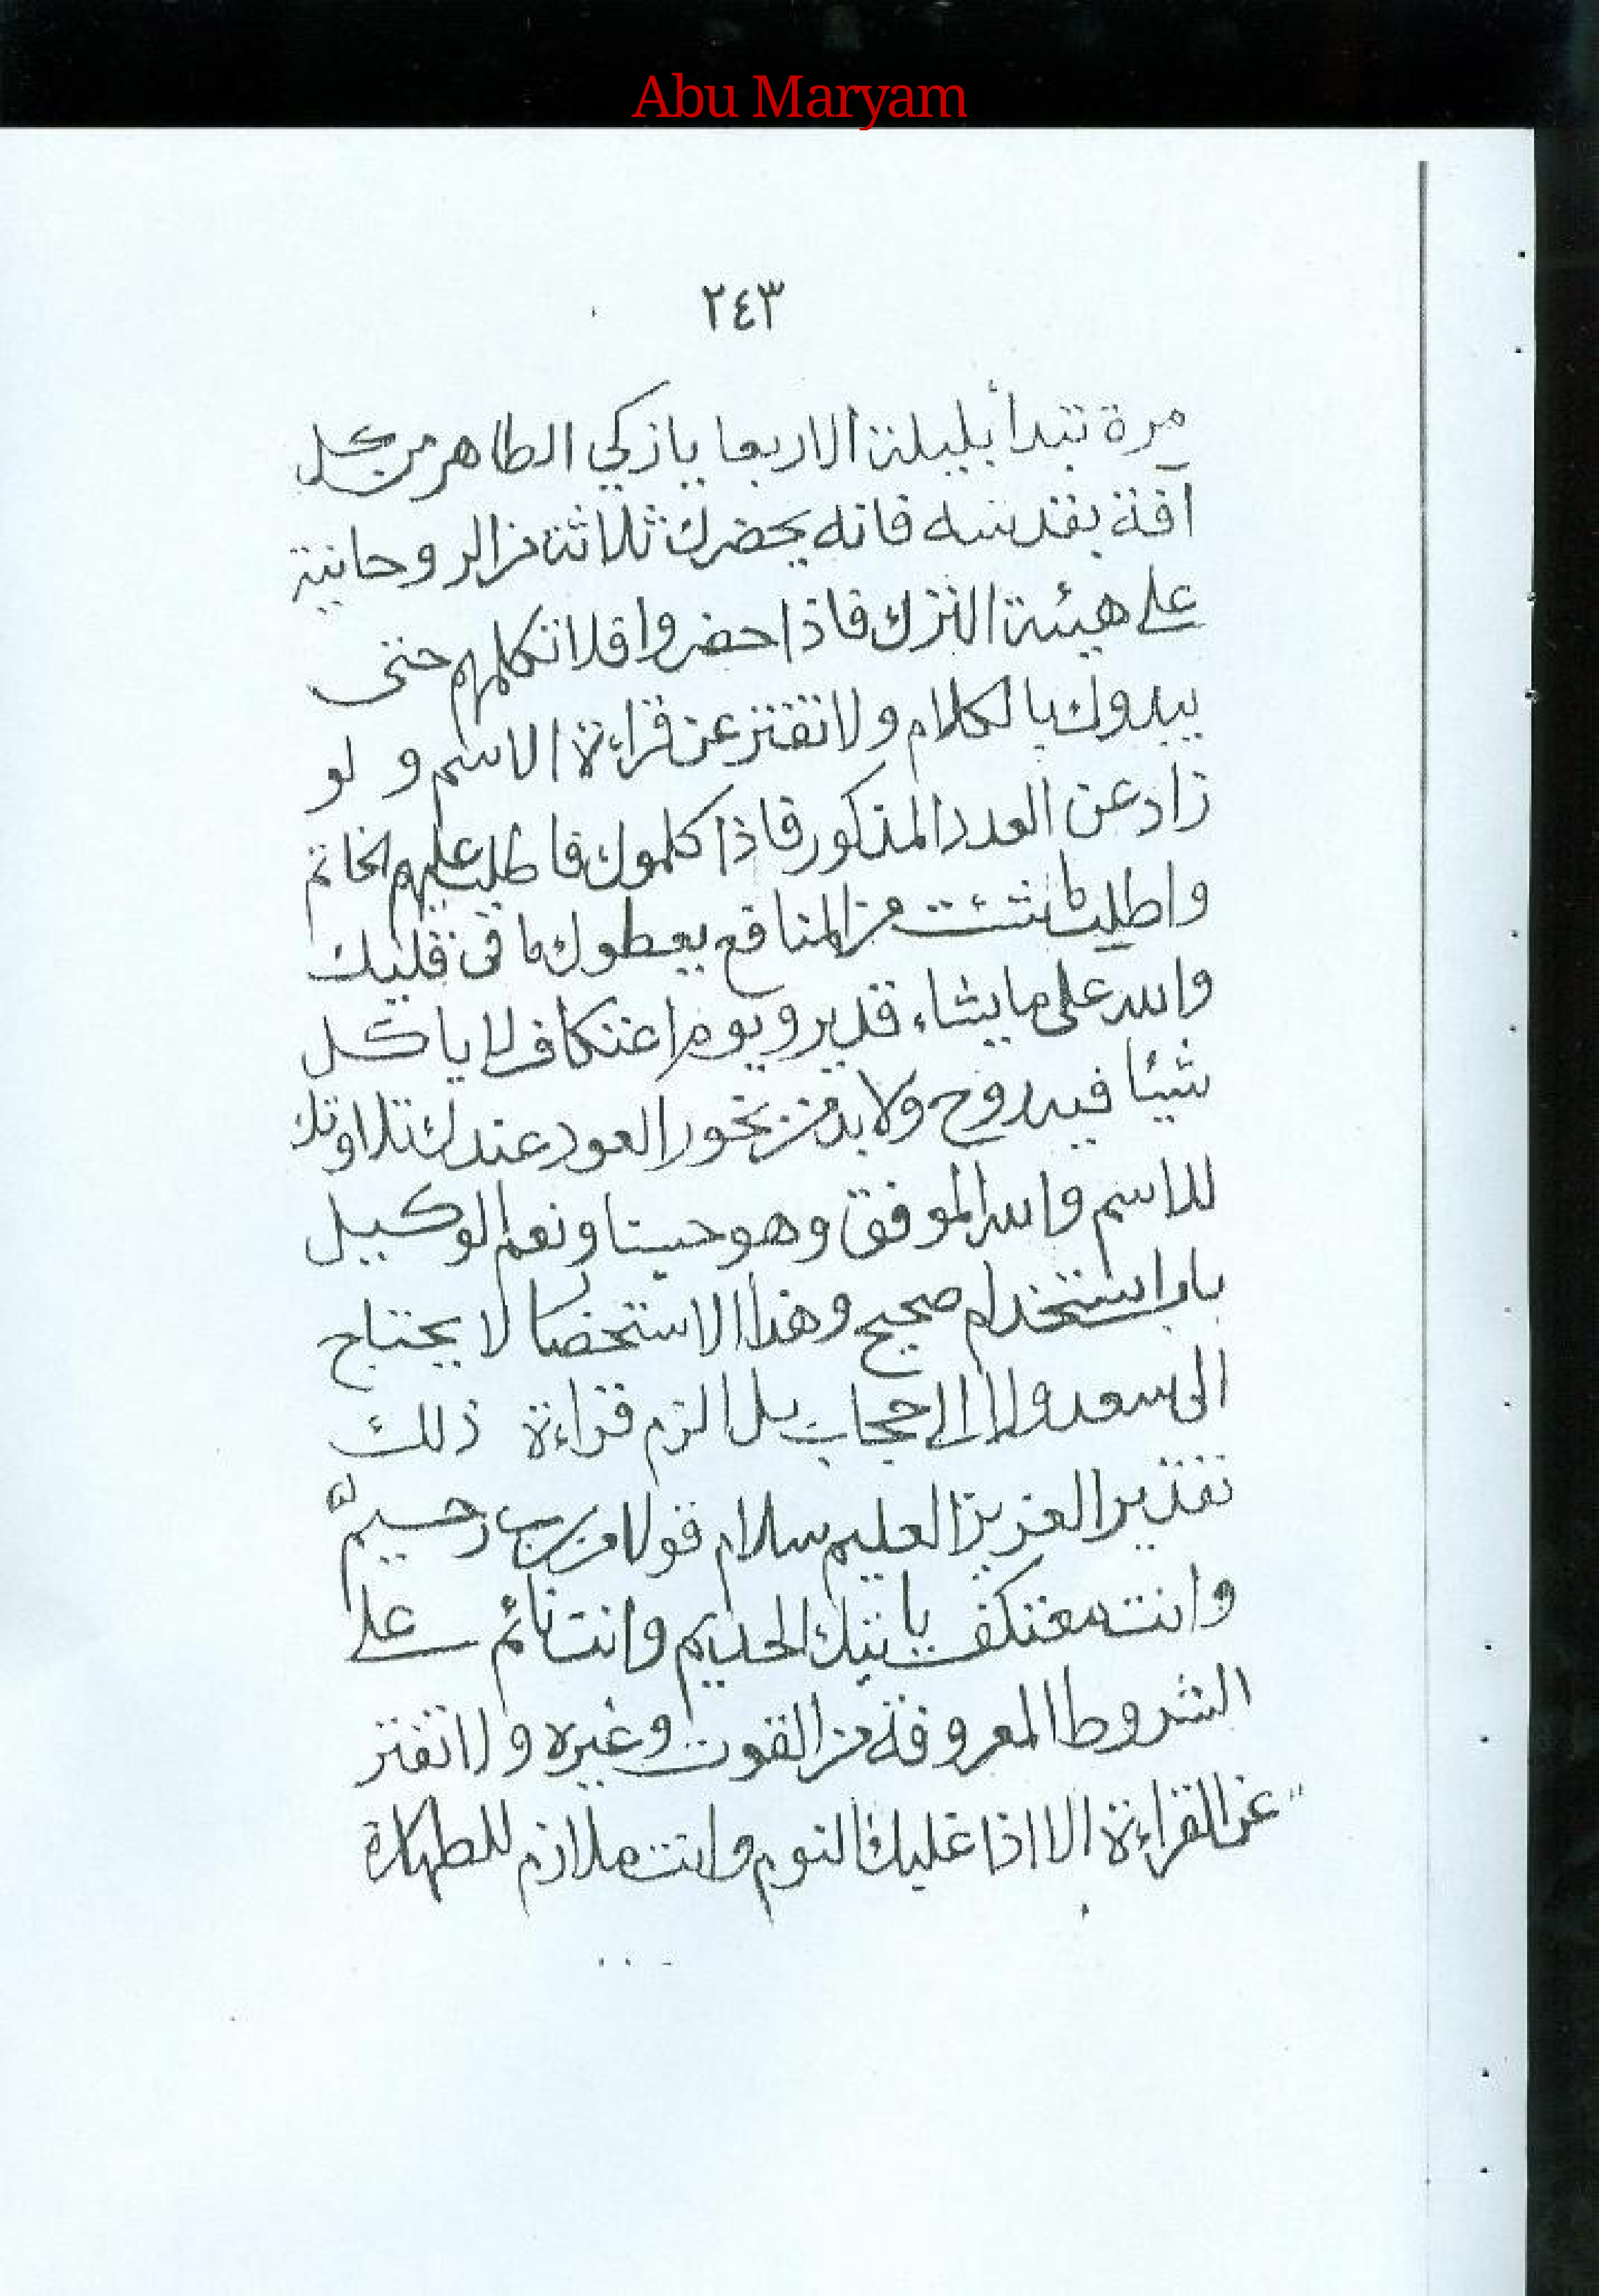 Abu Maryam
٢٤٣
مرة تبدأ بليلة الاربعا يا زكي الطاهر من كل
آفة بقدسه فانه يحضرك ثلاثة من الروحانية
على هيئة الترك فاذا حضروا فلا تكلمهم حتى
يبدوك بالكلام ولا تفتر عن قراءة الاسم و لو
زاد عن العدد المذكور فاذا كلموك فاطلب عليهم الخاتم
واطلب ما شئت من المنافع يعطوك ما في قلبك
والله على ما يشاء قدير ويوم اعتكافك لا ياكل
شيئا فيه روح ولا بد من بخور العود عندك تلاوتك
للاسم والله الموفق وهو حسبنا ونعم الوكيل
باب استخدام صحيح وهذا الاستحضا لا يحتاج
الى سعد ولا الى حجاب بل الزم قراءة ذلك
تقدير العزيز العليم سلام قولا من رب رحيم
وانت معتكف ياتيك الخديم وانت نائم على
الشروط المعروفة من القوت وغيره ولا تفتر
عن القراءة الا اذا غلبك النوم وانت ملازم للطهارة